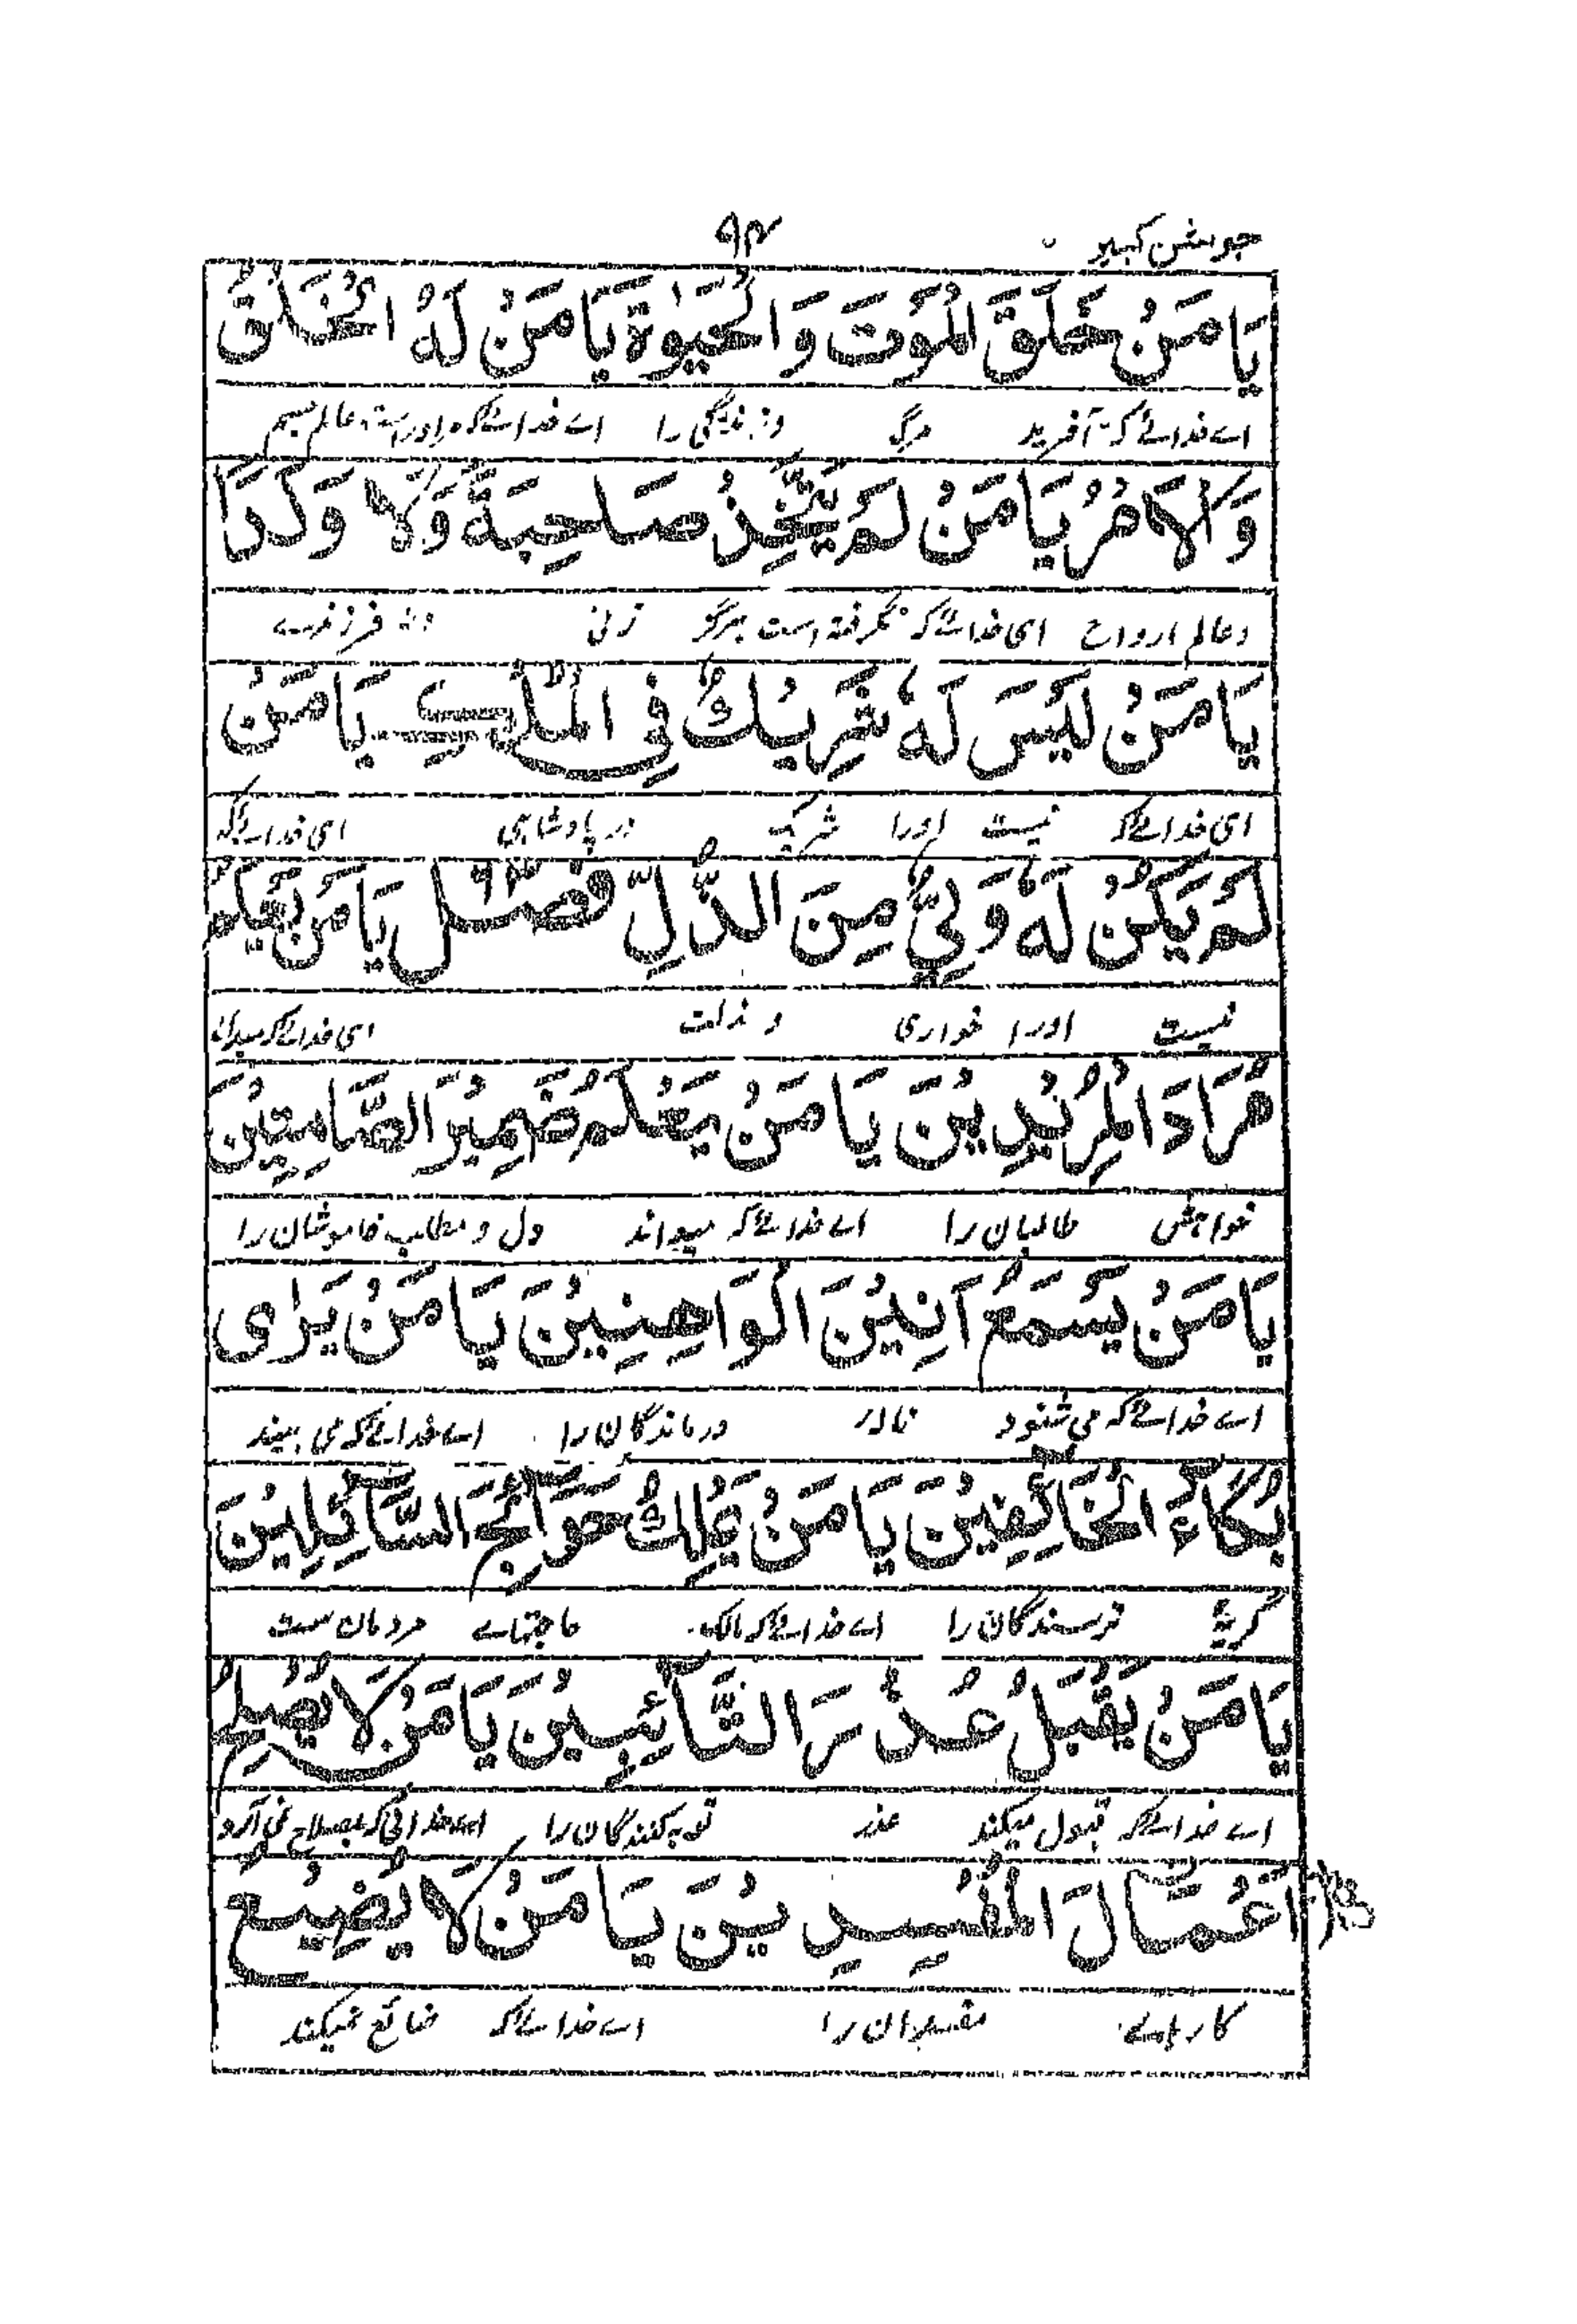 جوشن کبیر ۹۴
يَا مَنْ خَلَقَ الْمَوْتَ وَالْحَيٰوةَ يَا مَنْ لَهُ الْخَلْقُ
اے خدائے کہ آفرید مرگ و زندگی را اے خدائے کہ مر اوراست عالم جسم
وَالْاَمْرُ يَا مَنْ لَمْ يَتَّخِذْ صَاحِبَةً وَّلَا وَلَدًا
و عالم ارواح ای خدائے کہ نگرفتہ است ہرگز زنی و نہ فرزندے
يَا مَنْ لَيْسَ لَهٗ شَرِيْكٌ فِي الْمُلْكِ يَا مَنْ
ای خدائے کہ نیست اورا شریک در پادشاہی ای خدائے کہ
لَمْ يَكُنْ لَهٗ وَلِيٌّ مِنَ الذُّلِّ فصل ۹۴ يَا مَنْ يَعْلَمُ
نیست اورا خواری و ذلت ای خدائے کہ میداند
مُرَادَ الْمُرِيْدِيْنَ يَا مَنْ يَعْلَمُ ضَمِيْرَ الصَّامِتِيْنَ
خواہش طالبان را اے خدائے کہ میداند دل و مطالب خاموشان را
يَا مَنْ يَسْمَعُ اَنِيْنَ الْوَاهِنِيْنَ يَا مَنْ يَرٰى
اے خدائے کہ می شنود نالہ درماندگان را اے خدائے کہ می بیند
بُكَاءَ الْخَائِفِيْنَ يَا مَنْ يَمْلِكُ حَوَائِجَ السَّائِلِيْنَ
گریۂ ترسندگان را اے خدائے کہ مالک حاجتہاے مردمان ست
يَا مَنْ يَقْبَلُ عُذْرَ التَّائِبِيْنَ يَا مَنْ لَا يُصْلِحُ
اے خدائے کہ قبول میکند عذر توبہ کنندگان را اے خدائی کہ بصلاح نمی آرد
اَعْمَالَ الْمُفْسِدِيْنَ يَا مَنْ لَا يُضِيْعُ
کارہاے مفسدان را اے خدائے کہ ضائع نمیکند